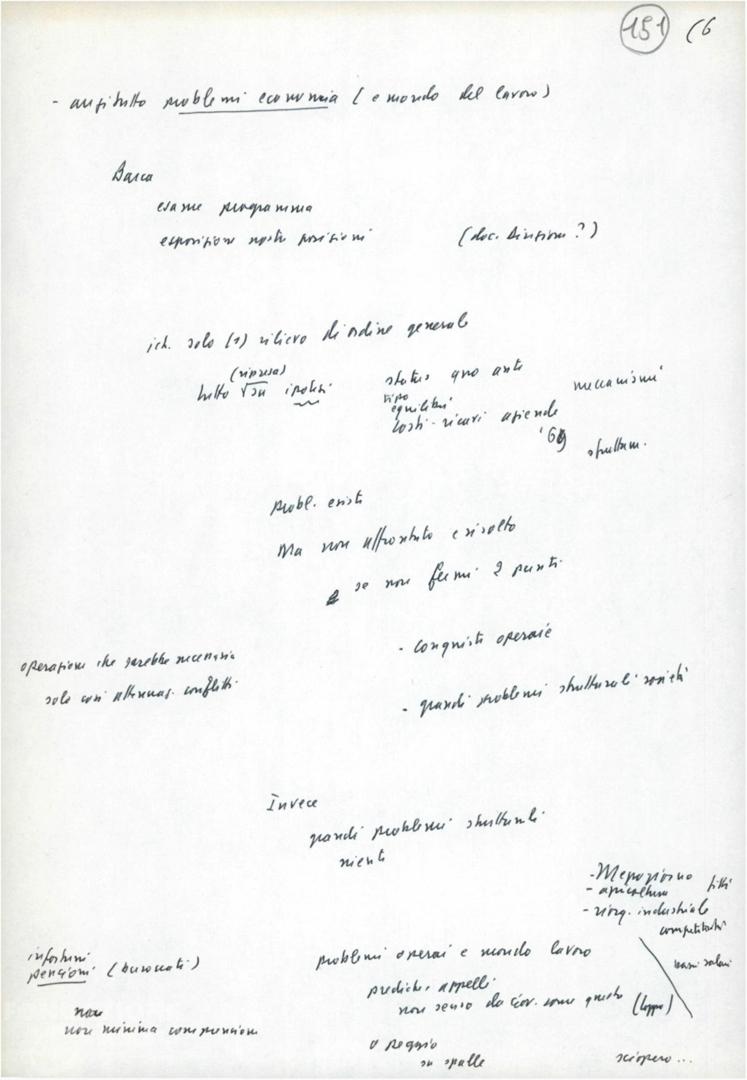 151 (6
- anzitutto problemi economia (e mondo del lavoro)
Barca
esame programma
esposizione nostre posizioni (doc. Direzione?)
ich. solo (1) rilievo di ordine generale
(ripresa)
tutto su ipotesi
status quo ante
tipo
equilibri
costi-ricavi aziende
'69
meccanismi
struttur.
probl. esiste
Ma non affrontato e risolto
se non fermi 2 punti
- conquiste operaie
- grandi problemi strutturali società
operazione che sarebbe necessaria
solo così attenuaz. conflitti
Invece
grandi problemi strutturali
niente
- Mezzogiorno
- agricoltura fitti
- riorg. industriale
competitività
bassi salari
infortuni
pensioni (burocrati)
non
non minima comprensione
problemi operai e mondo lavoro
prediche, appelli
non senso da gov. come questo (Coppo)
o peggio
su spalle
sciopero...